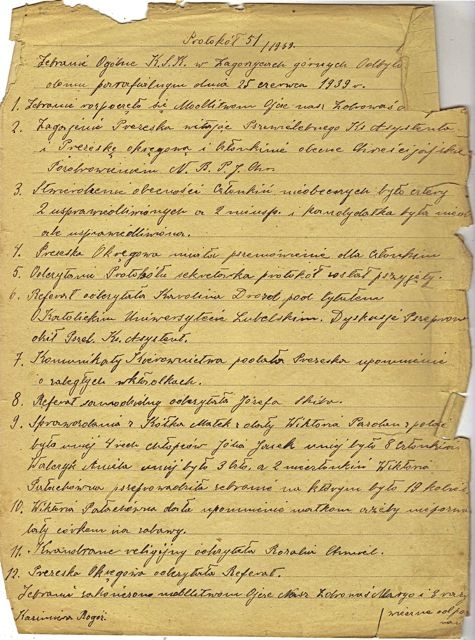 Protokół 51/1939.
Zebranie Ogólne K.S.K. w Zagorzycach górnych Odbyło
domu parafialnym dnia 25 czerwca 1939 r.
1. Zebranie rozpoczęło się Modlitwom Ojcze nasz Zdrowaś
2. Zagajenie Prezeska witając Przewielebnego Ks. Asystenta
i Prezeskę okręgową i Członkinie obecne Chrześcijańskie
Pozdrowieniem N. B. P. J. Chr.
3. Stwierdzenie obecności Członkiń nieobecnych było cztery
2 usprawiedliwionych a 2 nieusp. i kandydatka była
ale usprawiedliwiona.
4. Prezeska Okręgowa miała przemówienie dla Członkin
5. Odczytanie Protokółu sekretarka protokół został przyjęty.
6. Referat odczytała Karolina Drozd pod tytułem
O Katolickim Uniwersytecie Lubelskim. Dyskusję Przeprowa
dził Przel. Ks. Asystent.
7. Komunikaty Kierownictwa podała Prezeska upomnienie
o zaległych wkładkach.
8. Referat samodzielny odczytała Józefa Skiba.
9. Sprawozdania z Kółka Matek zdały Wiktoria
było mniej 4 chłopców Jasek mniej było 8 Członkiń
Walczyk Aniela mniej było 3 a 2 Wiktoria
Pałachówna przeprowadziła zebranie na którym było 19
10. Wiktoria dała upomnienie matkom ażeby
lały córkom na zabawy.
11. religijny odczytała Rozalia Chmiel.
12. Prezeska Okręgowa odczytała Referat.
Zebranie zakończono modlitwom Ojcze Nasz Zdrowaś Maryo i 3 razy
Kazimiera Rogóż. wieczne odpo